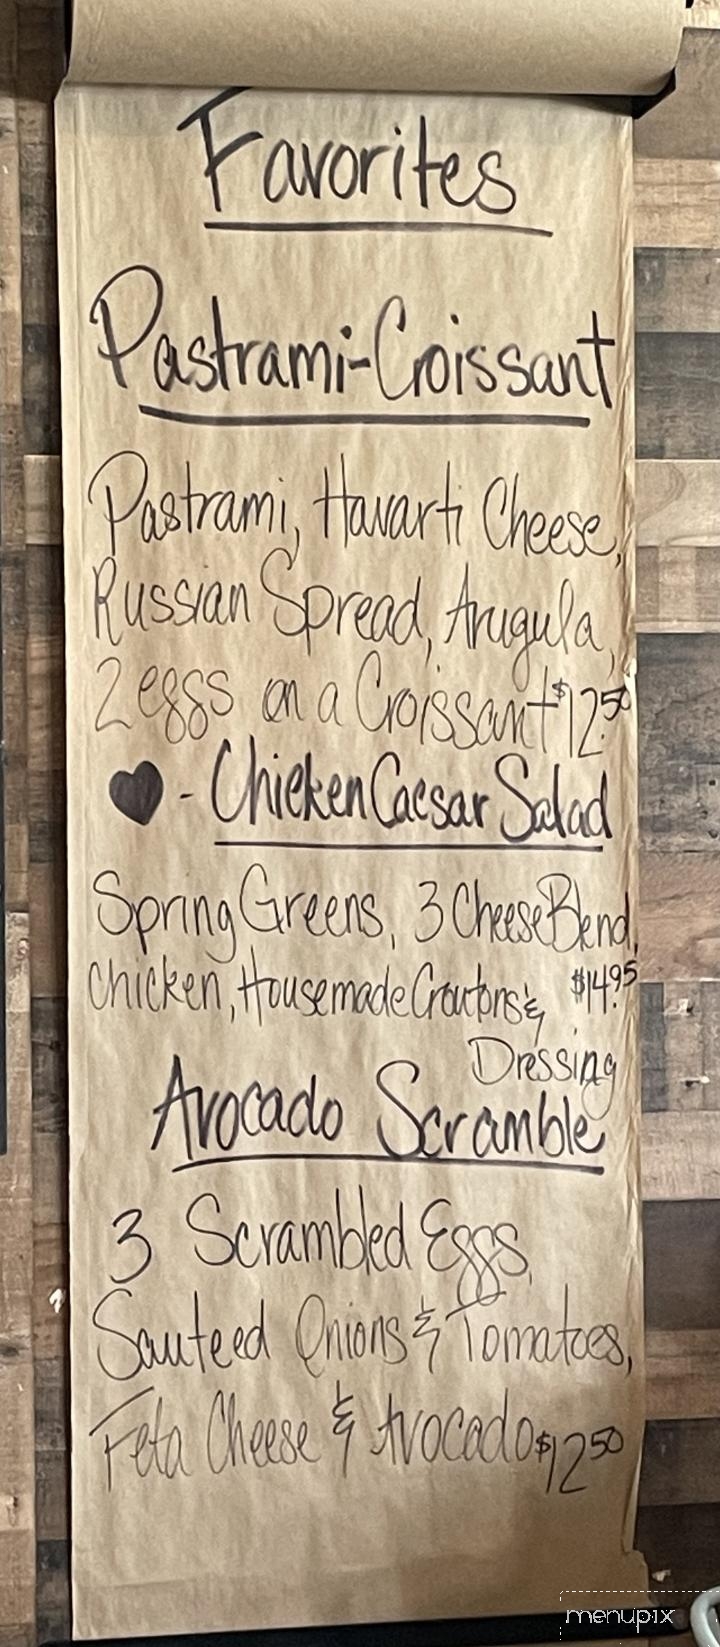 Favorites
Pastrami-Croissant
Pastrami, Havarti Cheese,
Russian Spread, Arugula,
2 eggs on a Croissant $12.50
♥ - Chicken Caesar Salad
Spring Greens, 3 Cheese Blend,
chicken, Housemade Croutons & $14.95
Dressing
Avocado Scramble
3 Scrambled Eggs,
Sauteed Onions & Tomatoes,
Feta Cheese & Avocado $12.50
menupix